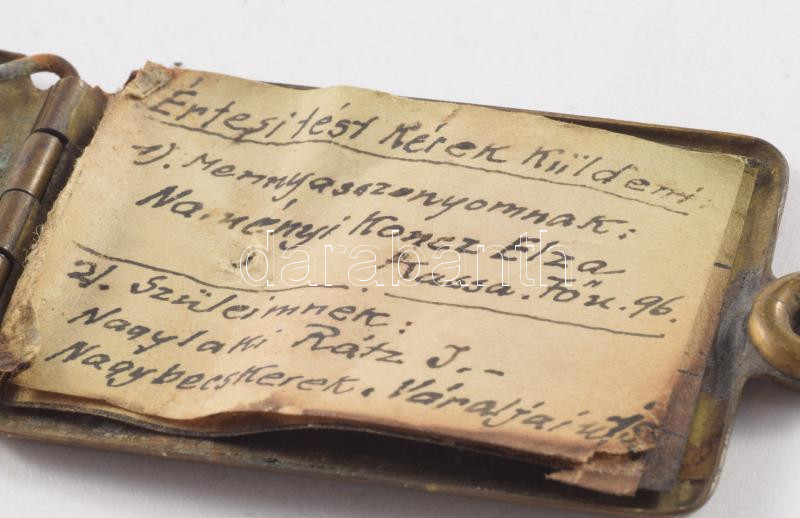 Értesitést Kérek Küldeni:
1). Mennyasszonyomnak:
Naményi Koncz Elza
Kassa. Főu. 96.
2). Szüleimnek:
Nagylaki Rátz J.-
Nagybecskerek. Váraljai u.
darabanth